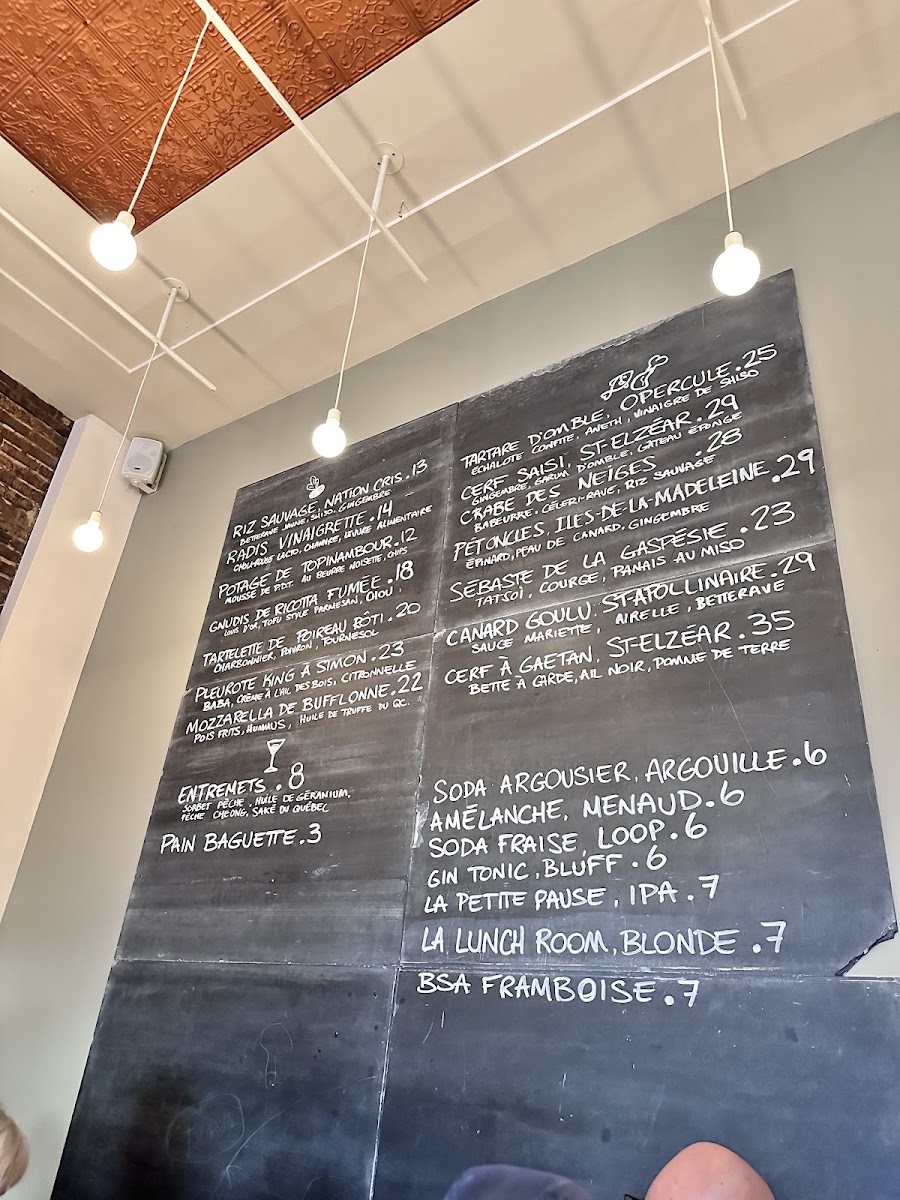 RIZ SAUVAGE, NATION CRIS.13
BETTERAVE JAUNE, SHISO, GINGEMBRE
RADIS VINAIGRETTE.14
CHOU-ROUGE LACTO, CHANVRE, LEVURE ALIMENTAIRE
POTAGE DE TOPINAMBOUR.12
MOUSSE DE P.D.T. AU BEURRE NOISETTE, CHIPS
GNUDIS DE RICOTTA FUMÉE.18
LOUIS D'OR, TOFU STYLE PARMESAN, CHOU
TARTELETTE DE POIREAU RÔTI.20
CHARBONNIER, POIVRON, TOURNESOL
PLEUROTE KING À SIMON.23
BABA, CRÈME À L'AIL DES BOIS, CITRONNELLE
MOZZARELLA DE BUFFLONNE.22
POIS FRITS, HUMMUS, HUILE DE TRUFFE DU QC.
ENTREMETS.8
SORBET PÊCHE, HUILE DE GÉRANIUM,
PÊCHE CHEONG, SAKÉ DU QUÉBEC
PAIN BAGUETTE.3
TARTARE D'OMBLE, OPERCULE.25
ÉCHALOTE CONFITE, ANETH, VINAIGRE DE SHISO
CERF SAISI, ST-ELZÉAR.29
GINGEMBRE, GARUM D'OMBLE, GÂTEAU ÉPONGE
CRABE DES NEIGES .28
BABEURRE, CÉLERI-RAVE, RIZ SAUVAGE
PÉTONCLES, ILES-DE-LA-MADELEINE.29
ÉPINARD, PEAU DE CANARD, GINGEMBRE
SÉBASTE DE LA GASPÉSIE.23
TATSOI, COURGE, PANAIS AU MISO
CANARD GOULU, ST-APOLLINAIRE.29
SAUCE MARIETTE, AIRELLE, BETTERAVE
CERF À GAETAN, ST-ELZÉAR.35
BETTE À CARDE, AIL NOIR, POMME DE TERRE
SODA ARGOUSIER, ARGOUILLE.6
AMÉLANCHE, MENAUD.6
SODA FRAISE, LOOP.6
GIN TONIC, BLUFF.6
LA PETITE PAUSE, IPA.7
LA LUNCH ROOM, BLONDE.7
BSA FRAMBOISE.7